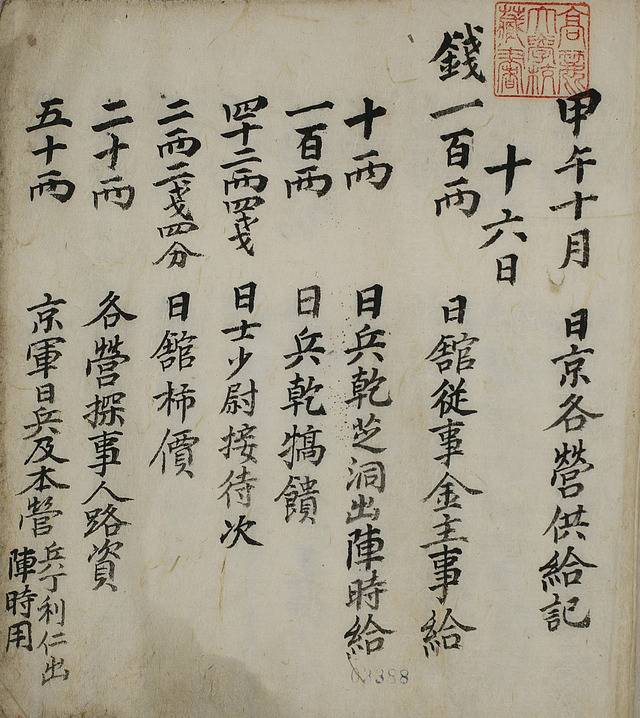 甲午十月 日京各營供給記
十六日
錢一百兩 日舘従事金主事給
十兩 日兵乾芝洞出陣時給
一百兩 日兵乾犒饋
四十二兩四戔 日士少尉接待次
二兩二戔四分 日舘柿價
二十兩 各營探事人路資
五十兩 京軍日兵及本營兵丁利仁出
陣時用